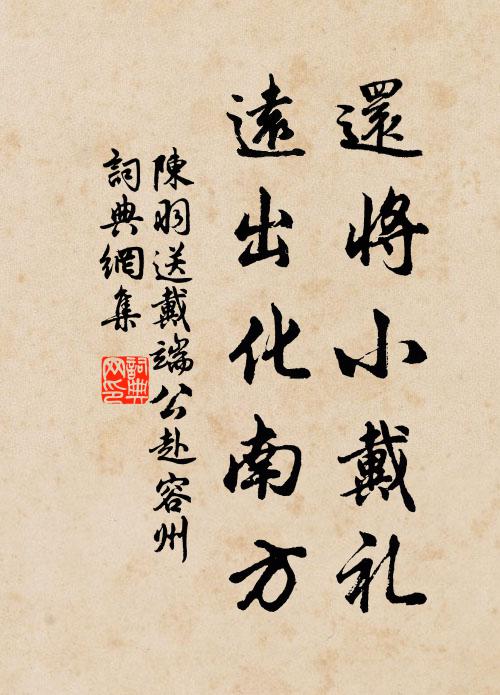 還將小戴礼
遠出化南方
陳羽送戴端公赴容州
詞典網集
詞典
网印